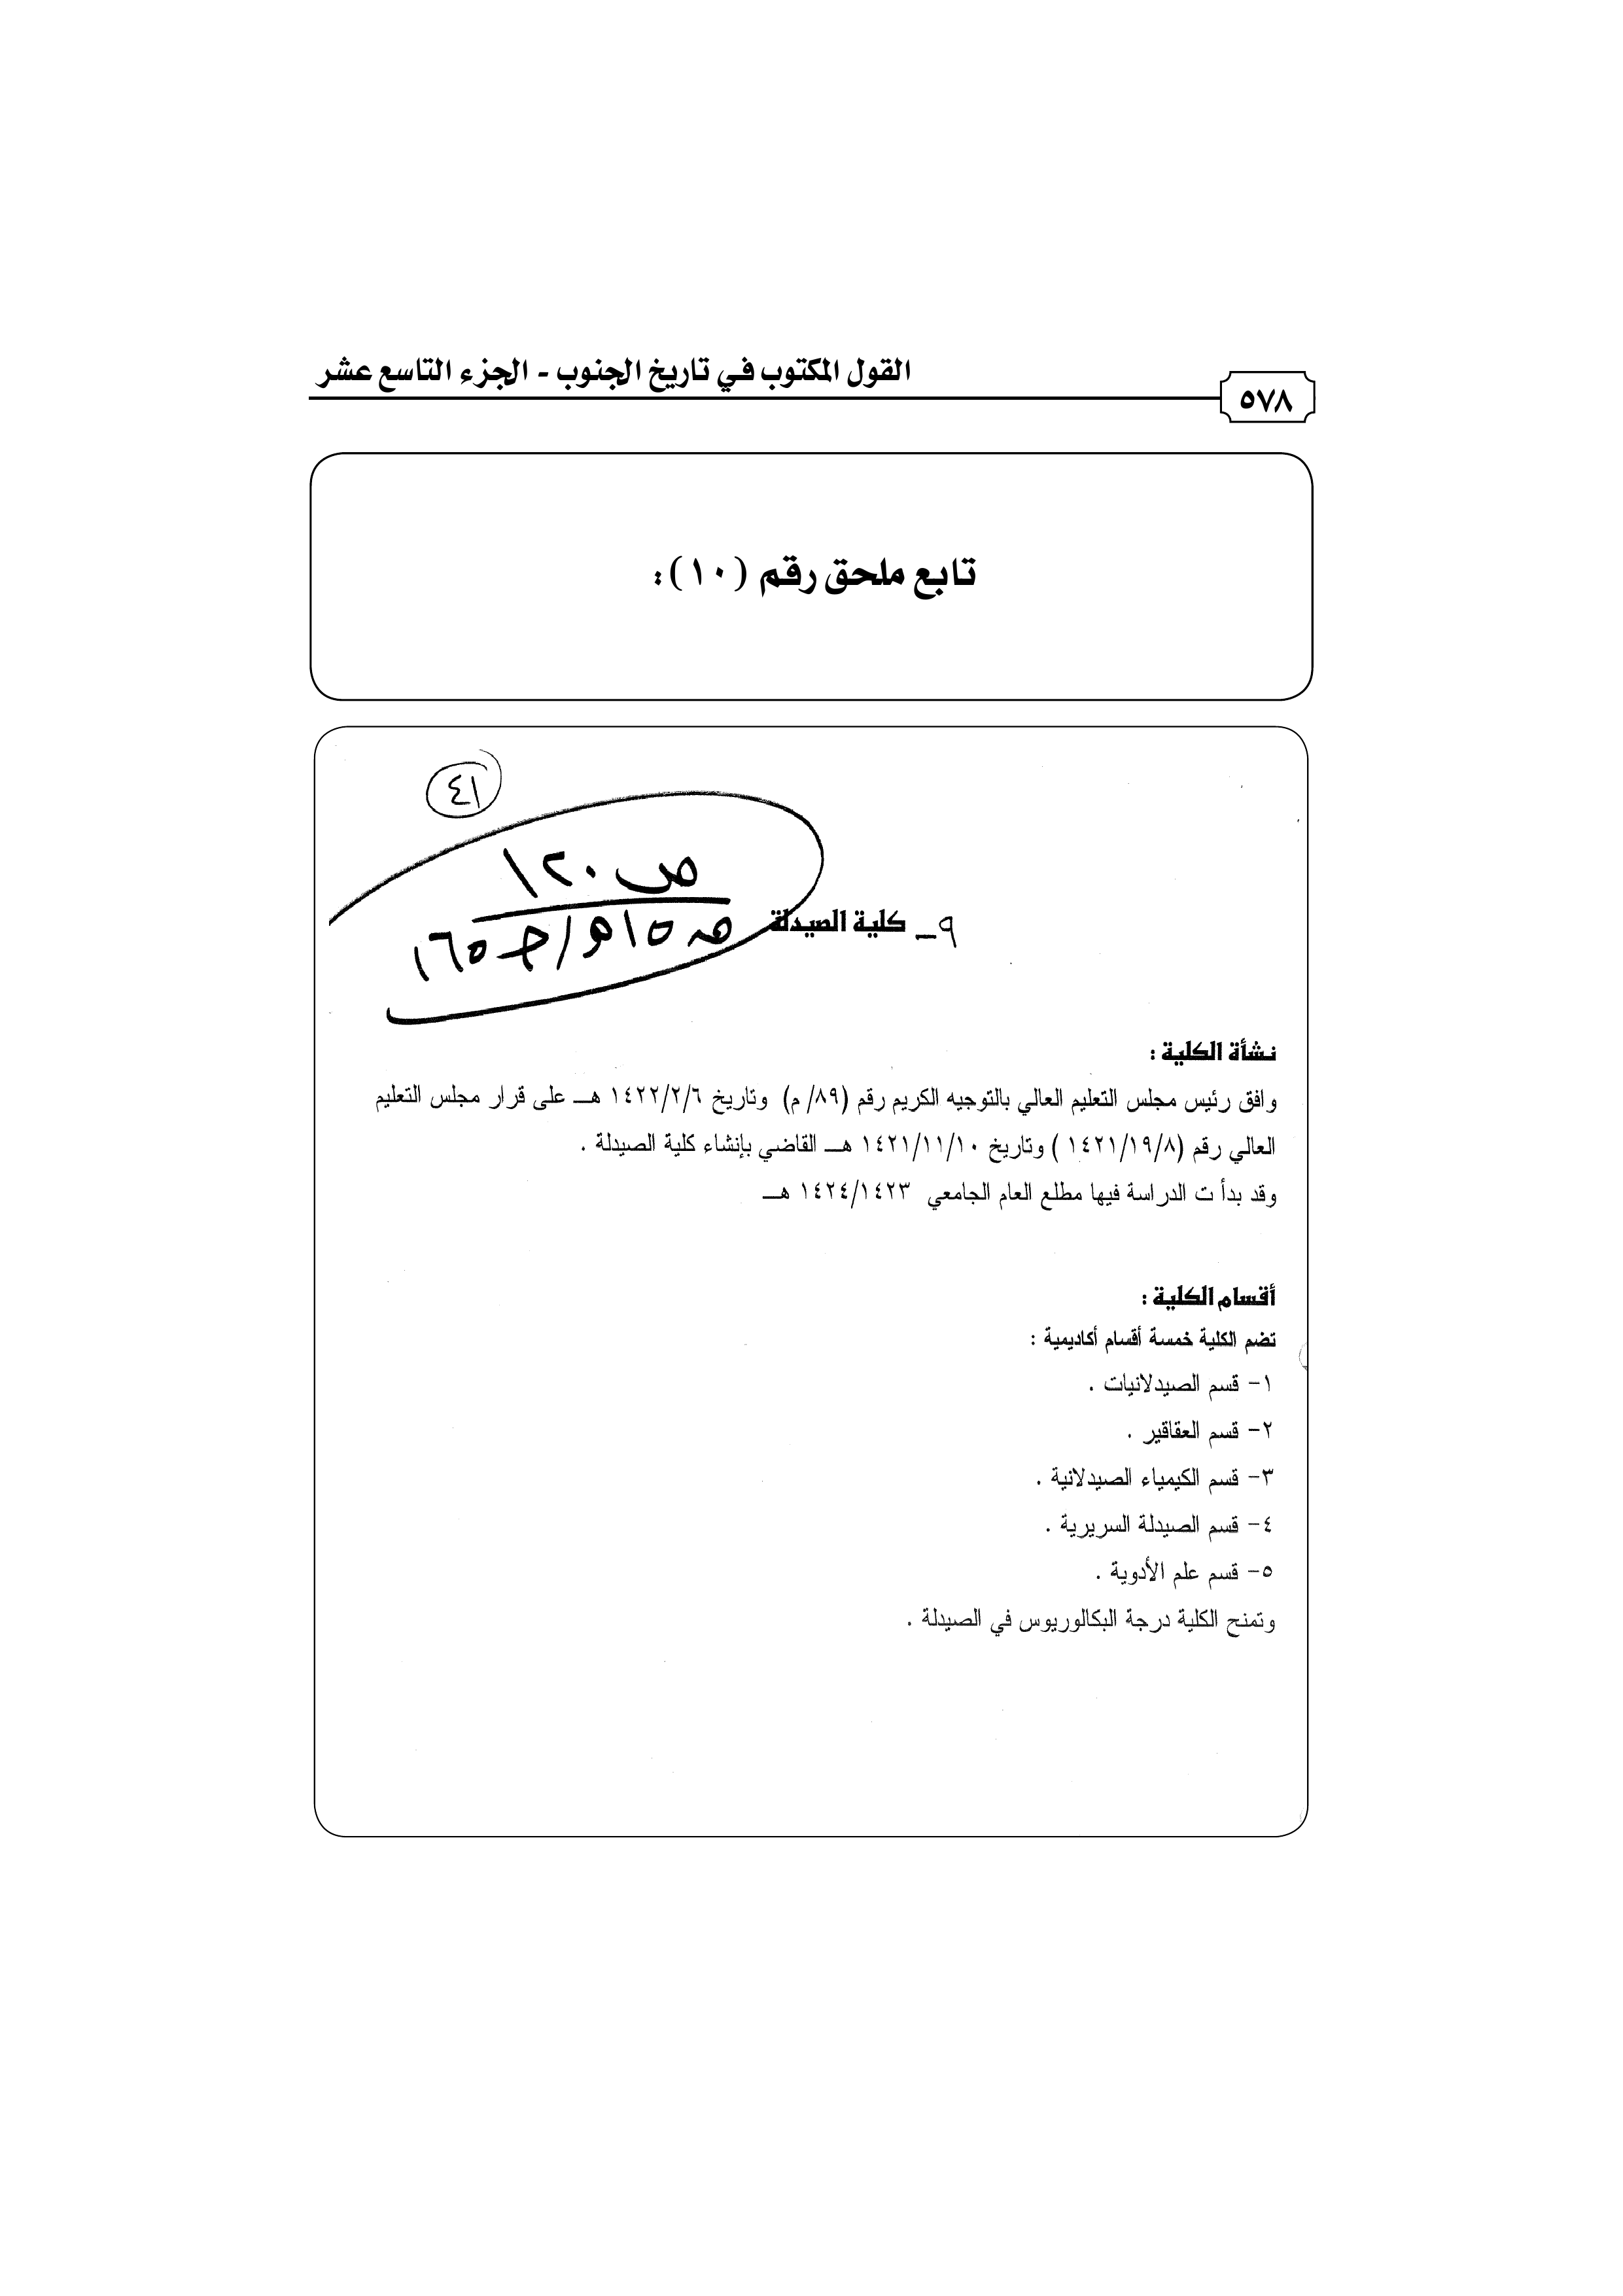 القول المكتوب في تاريخ الجنوب - الجزء التاسع عشر
٥٧٨
تابع ملحق رقم (١٠):
٤١
ص ١٢٠
٩_ كلية الصيدلة
نشأة الكلية :
وافق رئيس مجلس التعليم العالي بالتوجيه الكريم رقم (٨٩/ م) وتاريخ ١٤٢٢/٢/٦ هـ على قرار مجلس التعليم
العالي رقم (١٤٢١/١٩/٨ ) وتاريخ ١٤٢١/١١/١٠ هـ القاضي بإنشاء كلية الصيدلة .
وقد بدأ ت الدراسة فيها مطلع العام الجامعي ١٤٢٤/١٤٢٣ هـ
أقسام الكلية :
تضم الكلية خمسة أقسام أكاديمية :
١- قسم الصيدلانيات .
٢- قسم العقاقير .
٣- قسم الكيمياء الصيدلانية .
٤- قسم الصيدلة السريرية .
٥- قسم علم الأدوية .
وتمنح الكلية درجة البكالوريوس في الصيدلة .